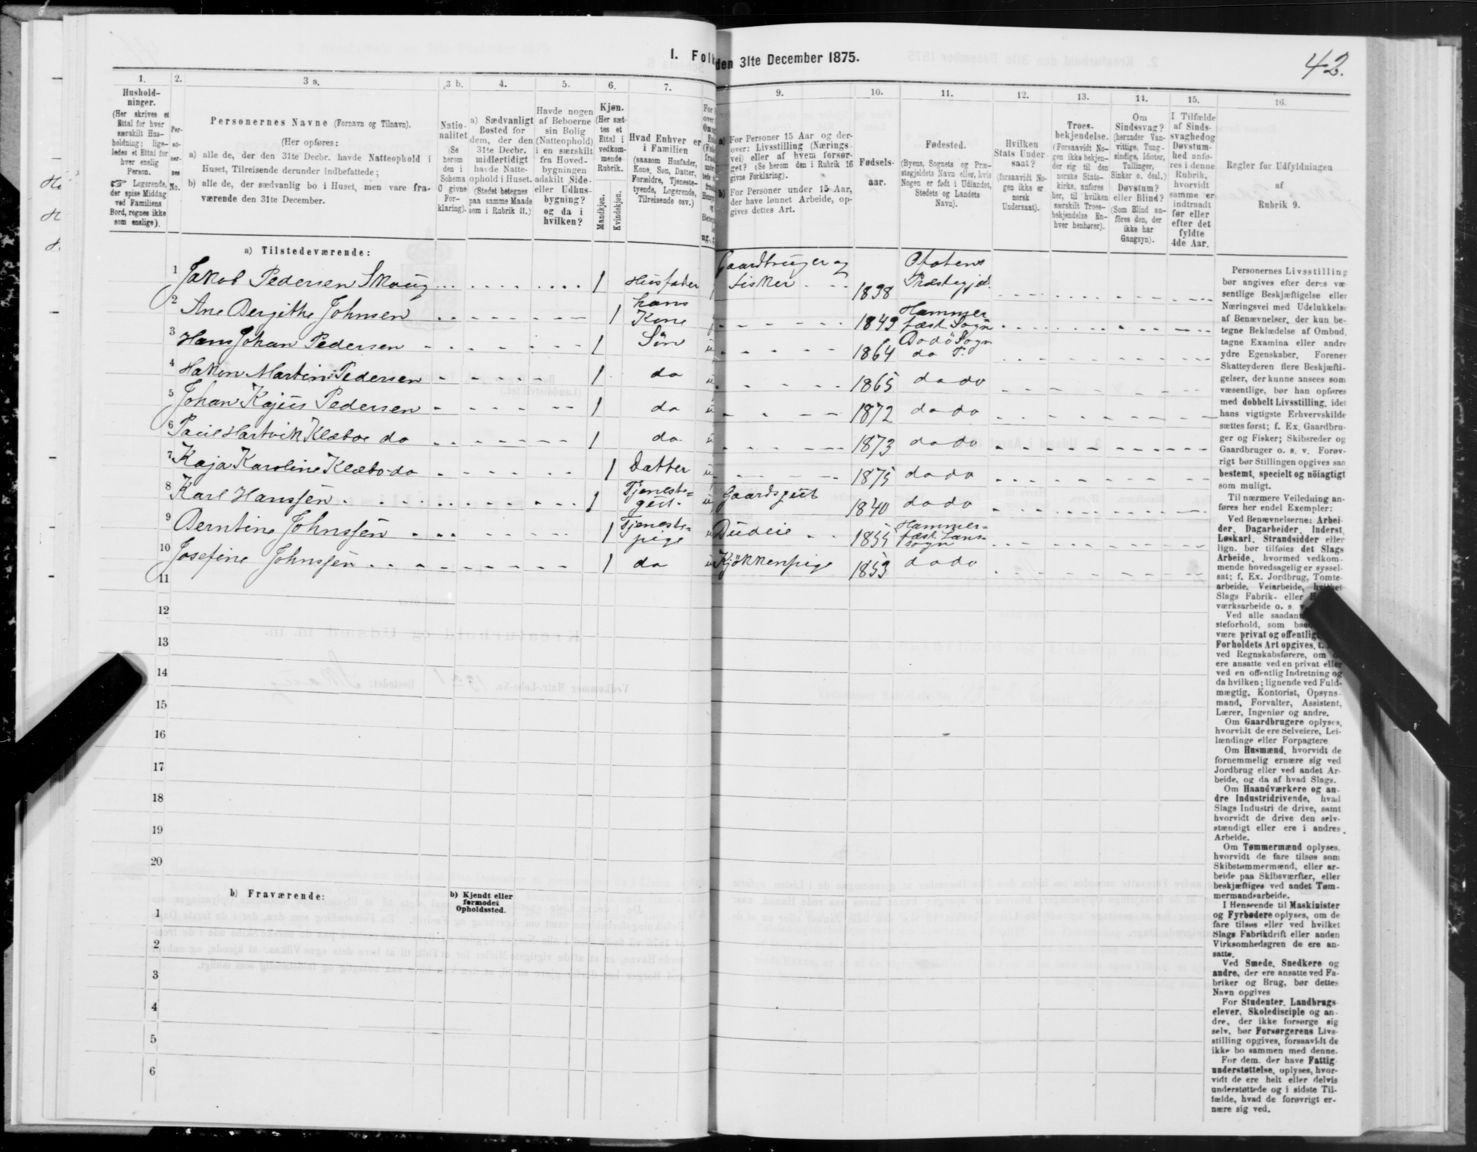 I. Folk
den 31te December 1875.
42.
1.
Hushold-
ninger.
(Her skrives et
Ettal for hver
særskilt Hus-
holdning; lige-
ledes et Ettal for
hver enslig
Person.
☞ Logerende,
der spise Middag
ved Familiens
Bord, regnes ikke
som enslige).
2.
Per-
so-
ner-
nes
No.
3 a.
Personernes Navne (Fornavn og Tilnavn).
(Her opføres:
a) alle de, der den 31te Decbr. havde Natteophold i
Huset, Tilreisende derunder indbefattede;
b) alle de, der sædvanlig bo i Huset, men vare fra-
værende den 31te December.
3 b.
Natio-
nalitet
(Se
herom
den i
Schema
O givne
For-
klaring).
4.
a) Sædvanligt
Bosted for
dem, der den
31te Decbr.
midlertidigt
havde Natte-
ophold i Huset.
(Stedet betegnes
paa samme Maade
som i Rubrik 11.)
5.
Havde nogen
af Beboerne
sin Bolig
(Natteophold)
i en særskilt
fra Hoved-
bygningen
adskilt Side-
eller Udhus-
bygning?
og da i
hvilken?
6.
Kjøn.
(Her sæt-
tes et
Ettal i
vedkom-
mende
Rubrik.
Mandkjøn.
Kvindekjøn.
7.
Hvad Enhver er
i Familien
(saasom Husfader,
Kone, Søn, Datter,
Forældre, Tjeneste-
tyende, Logerende,
Tilreisende osv.)
9.
a) For Personer 15 Aar og der-
over: Livsstilling (Nærings-
vei) eller af hvem forsør-
get? (Se herom den i Rubrik 16
givne Forklaring).
b) For Personer under 15 Aar,
der have lønnet Arbeide, op-
gives dettes Art.
10.
Fødsels-
aar.
11.
Fødested.
(Byens, Sognets og Præ-
stegjeldets Navn eller, hvis
Nogen er født i Udlandet,
Stedets og Landets
Navn).
12.
Hvilken
Stats Under-
saat?
(forsaavidt No-
gen ikke er
norsk
Undersaat).
13.
Troes-
bekjendelse.
(Forsaavidt No-
gen ikke bekjen-
der sig til den
norske Stats-
kirke, anføres
her, til hvilken
særskilt Troes-
bekjendelse En-
hver henhører).
14.
Om
Sindssvag?
(herunder Van-
vittige, Tung-
sindige, Idioter,
Tullinger,
Sinker o. desl.)
Døvstum?
eller Blind?
(Som Blind an-
føres den, der
ikke har
Gangsyn).
15.
I Tilfælde
af Sinds-
svaghed og
Døvstum-
hed anfø-
res i denne
Rubrik,
hvorvidt
samme er
indtraadt
før eller
efter det
fyldte
4de Aar.
16.
Regler for Udfyldningen
af
Rubrik 9.
a) Tilstedeværende:
1 Jakob Pedersen Skoug 1 Husfader Gaardbruger og Fisker 1838 Ofotens Præstegjd.
2 Ane Bergithe Johnsen 1 hans Kone 1849 Hammerfæst Sogn
3 Hans Johan Pedersen 1 Søn 1864 Bodø Sogn do P.
4 Hakon Martin Pedersen 1 do 1865 do do
5 Johan Kajus Pedersen 1 do 1872 do do
6 Paul Hartvik Klæboe do 1 do 1873 do do
7 Kaja Karoline Klæbo do 1 Datter 1875 do do
8 Karl Hanssen 1 Tjeneste=gut Gaardsgut 1840 do do
9 Berntine Johnssen 1 Tjeneste=pige Budeie 1855 Hammerfæst Lands=sogn
10 Josefine Johnssen 1 do Kjøkkenpige 1853 do do
11
12
13
14
15
16
17
18
19
20
b) Fraværende:
b) Kjendt eller
formodet
Opholdssted.
1
2
3
4
5
6
Personernes Livsstilling
bør angives efter deres væ-
sentlige Beskjæftigelse eller
Næringsvei med Udelukkelse
af Benævnelser, der kun be-
tegne Beklædelse af Ombud,
tagne Examina eller andre
ydre Egenskaber. Forener
Skatteyderen flere Beskjæfti-
gelser, der kunne ansees som
væsentlige, bør han opføres
med dobbelt Livsstilling, idet
hans vigtigste Erhvervskilde
sættes først; f. Ex. Gaardbru-
ger og Fisker; Skibsreder og
Gaardbruger o. s. v. Forøv-
rigt bør Stillingen opgives saa
bestemt, specielt og nøiagtigt
som muligt.
Til nærmere Veiledning an-
føres her endel Exempler:
Ved Benævnelserne: Arbei-
der, Dagarbeider, Inderst,
Løskarl, Strandsidder eller
lign. bør tilføies det Slags
Arbeide, hvormed vedkom-
mende hovedsagelig er syssel-
sat; f. Ex. Jordbrug, Tomte-
arbeide, Veiarbeide, hvilket
Slags Fabrik- eller
værksarbeide o. s. v.
Ved alle saadan
steforhold, som
være privat og offentlig
Forholdets Art opgives,
ved Regnskabsførere, om
ere ansatte ved en privat eller
ved en offentlig Indretning og
da hvilken; lignende ved Fuld-
mægtig, Kontorist, Opsyns-
mand, Forvalter, Assistent,
Lærer, Ingeniør og andre.
Om Gaardbrugere oplyses,
hvorvidt de ere Selveiere, Lei-
lændinge eller Forpagtere
Om Husmænd, hvorvidt de
fornemmelig ernære sig ved
Jordbrug eller ved andet Ar-
beide, og da af hvad Slags.
Om Haandværkere og an-
dre Industridrivende, hvad
Slags Industri de drive, samt
hvorvidt de drive den selv-
stændigt eller ere i andres
Arbeide.
Om Tømmermænd oplyses,
hvorvidt de fare tilsøs som
Skibstømmermænd, eller ar-
beide paa Skibsværfter, eller
beskjæftiges ved andet Tøm-
mermandsarbeide.
I Henseende til Maskinister
og Fyrbødere oplyses, om de
fare tilsøs eller ved hvilket
Slags Fabrikdrift eller anden
Virksomhedsgren de ere an-
satte.
Ved Smede, Snedkere og
andre, der ere ansatte ved Fa-
briker og Brug, bør dettes
Navn opgives
For Studenter, Landbrugs-
elever, Skoledisciple og an-
dre, der ikke forsørge sig
selv, bør Forsørgerens Livs-
stilling opgives, forsaavidt de
ikke bo sammen med denne.
For dem, der have Fattig-
understøttelse, oplyses, hvor-
vidt de ere helt eller delvis
understøttede og i sidste Til-
fælde, hvad de forøvrigt er-
nære sig ved.